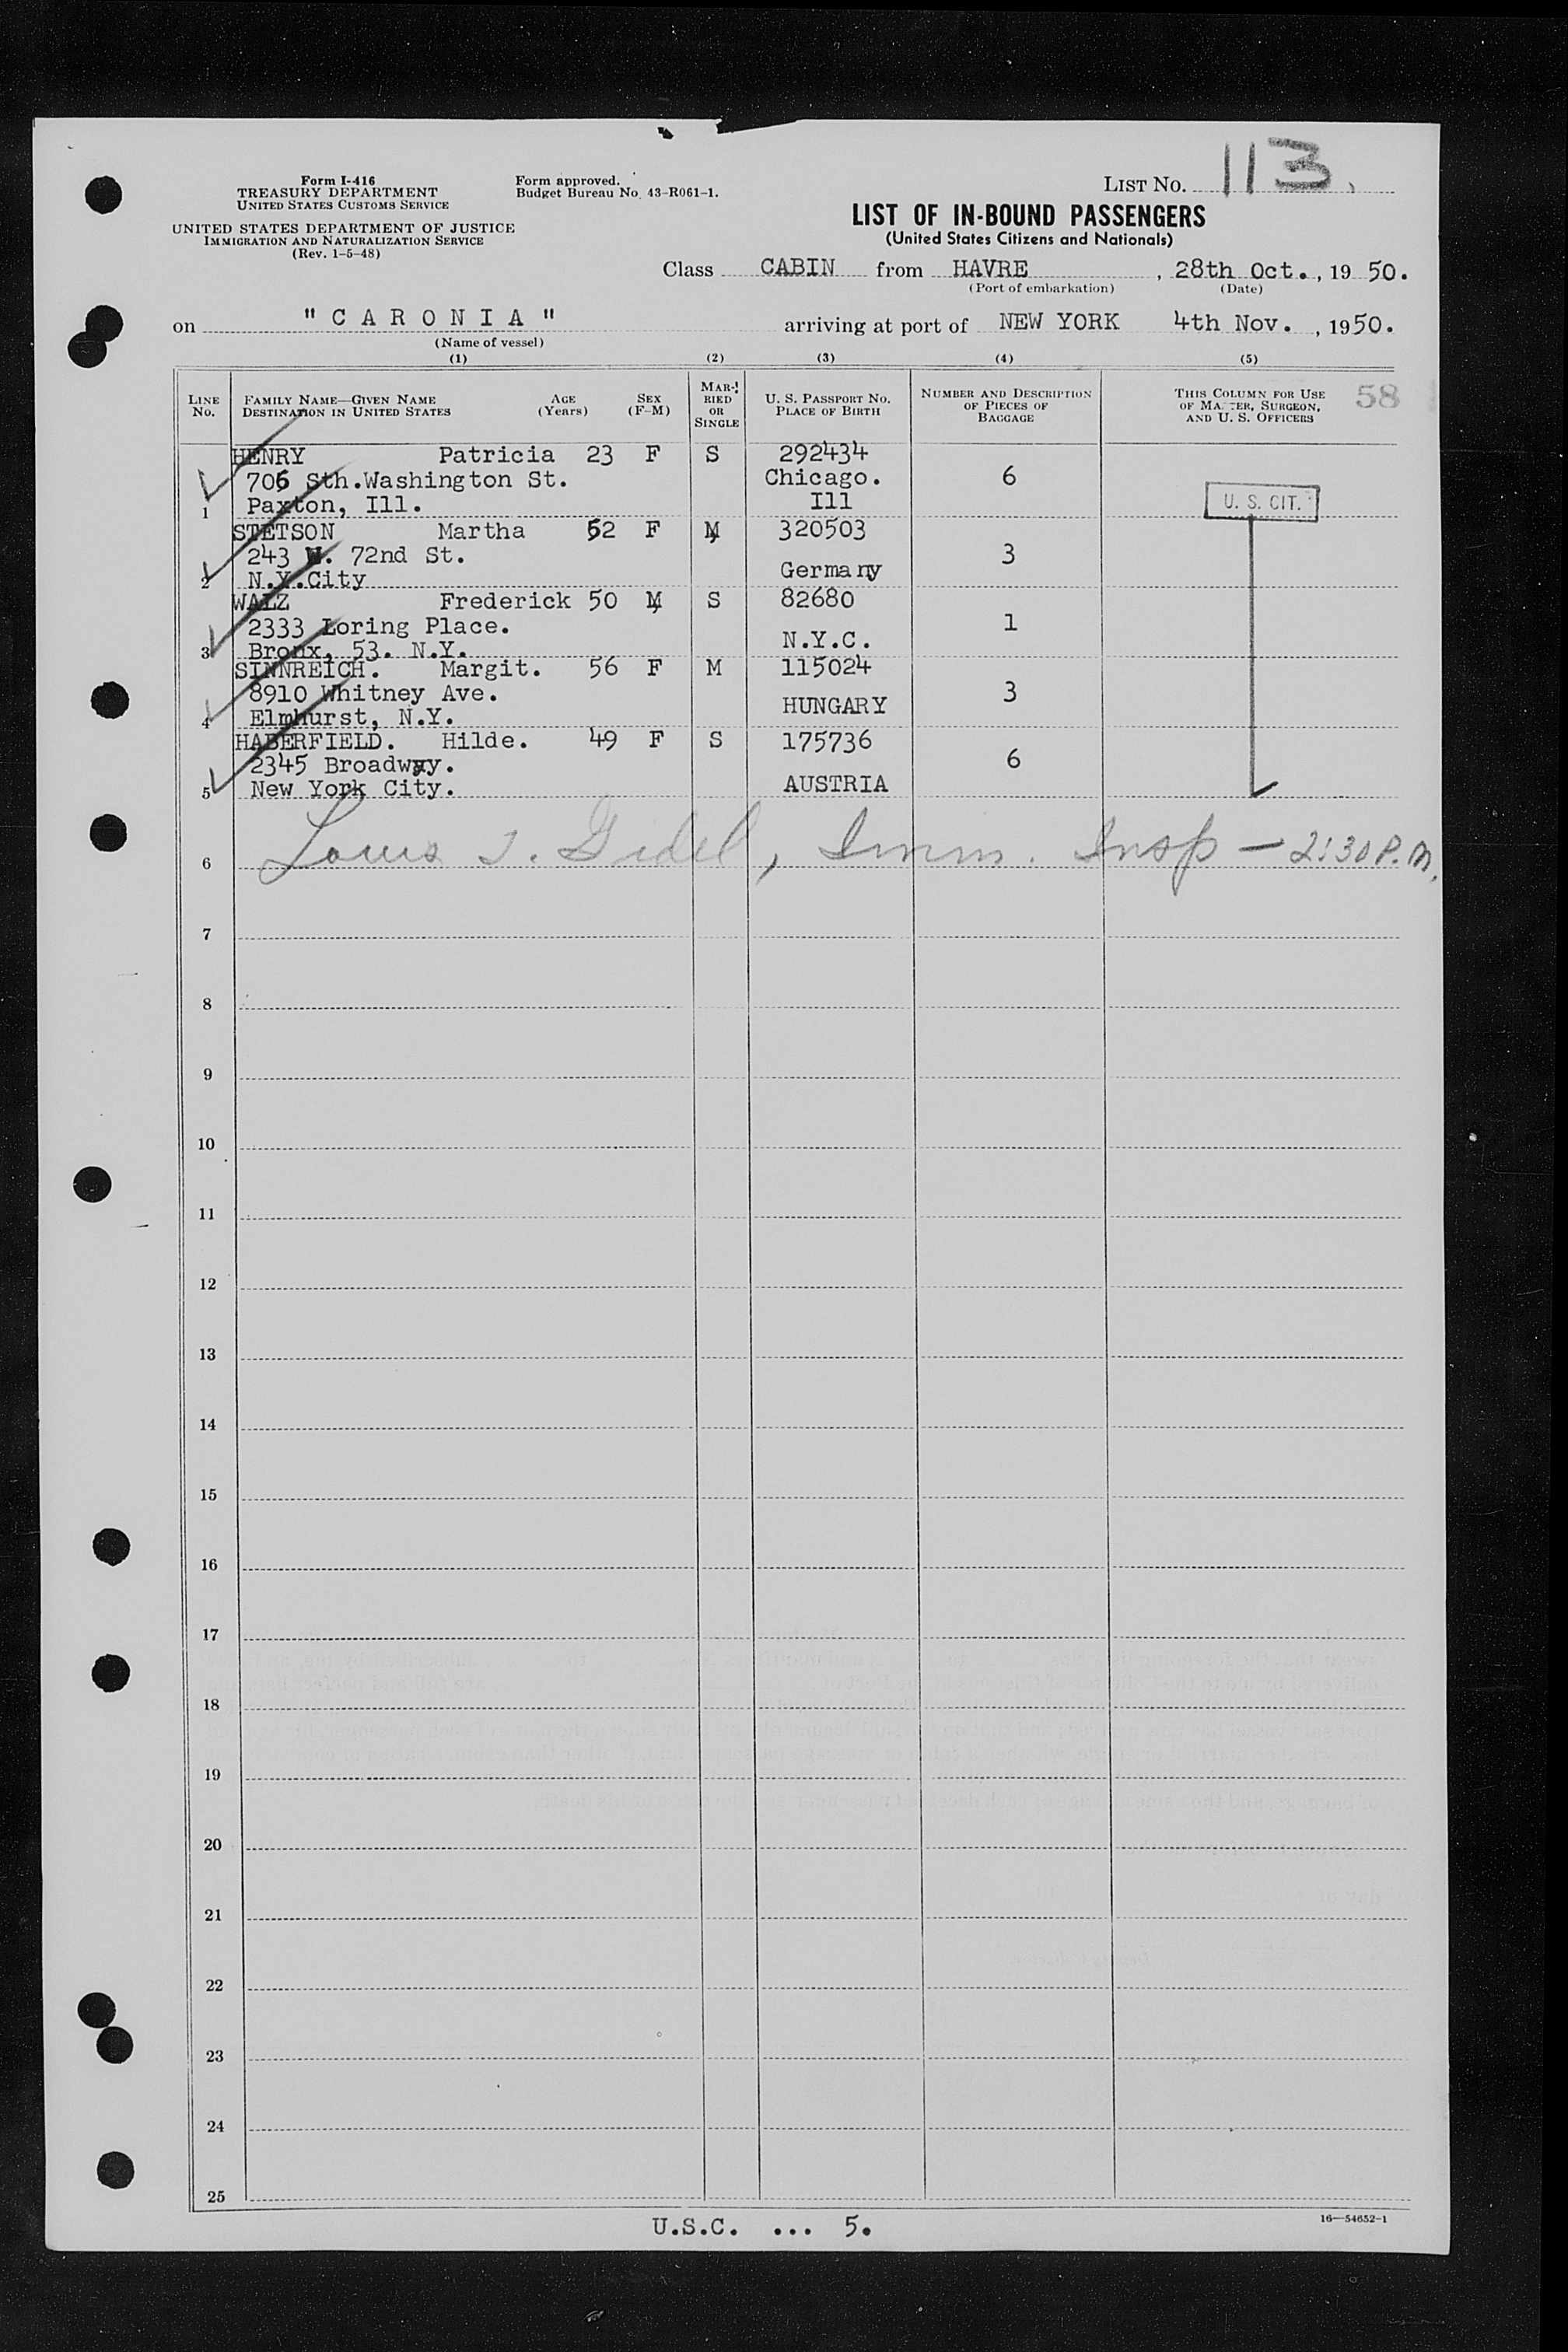 113.
Form I-416
TREASURY DEPARTMENT
UNITED STATES CUSTOMS SERVICE
UNITED STATES DEPARTMENT OF JUSTICE
IMMIGRATION AND NATURALIZATION SERVICE
(Rev. 1-5-48)
Form approved.
Budget Bureau No. 43-R061-1.
LIST NO.
LIST OF IN-BOUND PASSENGERS
(United States Citizens and Nationals)
Class CABIN from HAVRE, 28th Oct., 1950.
(Port of embarkation) (Date)
on "CARONIA" arriving at port of NEW YORK 4th Nov., 1950.
(Name of vessel)
(1) (2) (3) (4) (5)
LINE NO.
FAMILY NAME—GIVEN NAME AGE SEX
DESTINATION IN UNITED STATES (Years) (F-M)
MARRIED OR SINGLE
U. S. PASSPORT NO.
PLACE OF BIRTH
NUMBER AND DESCRIPTION
OF PIECES OF
BAGGAGE
THIS COLUMN FOR USE
OF MASTER, SURGEON,
AND U. S. OFFICERS
58
HENRY Patricia 23 F S 292434
706 Sth.Washington St. Chicago. 6
1 Paxton, Ill. Ill
U. S. CIT.
STETSON Martha 52 F M 320503
243 W. 72nd St. 3
2 N.Y.City Germany
WALZ Frederick 50 M S 82680
2333 Loring Place. 1
3 Bronx, 53. N.Y. N.Y.C.
SINNREICH. Margit. 56 F M 115024
8910 Whitney Ave. HUNGARY 3
4 Elmhurst, N.Y.
HABERFIELD. Hilde. 49 F S 175736
2345 Broadway. 6
5 New York City. AUSTRIA
6 Louis J. Gidel, Imm. Insp — 2:30 P.M.
7
8
9
10
11
12
13
14
15
16
17
18
19
20
21
22
23
24
25
U.S.C. ... 5.
16—54652-1